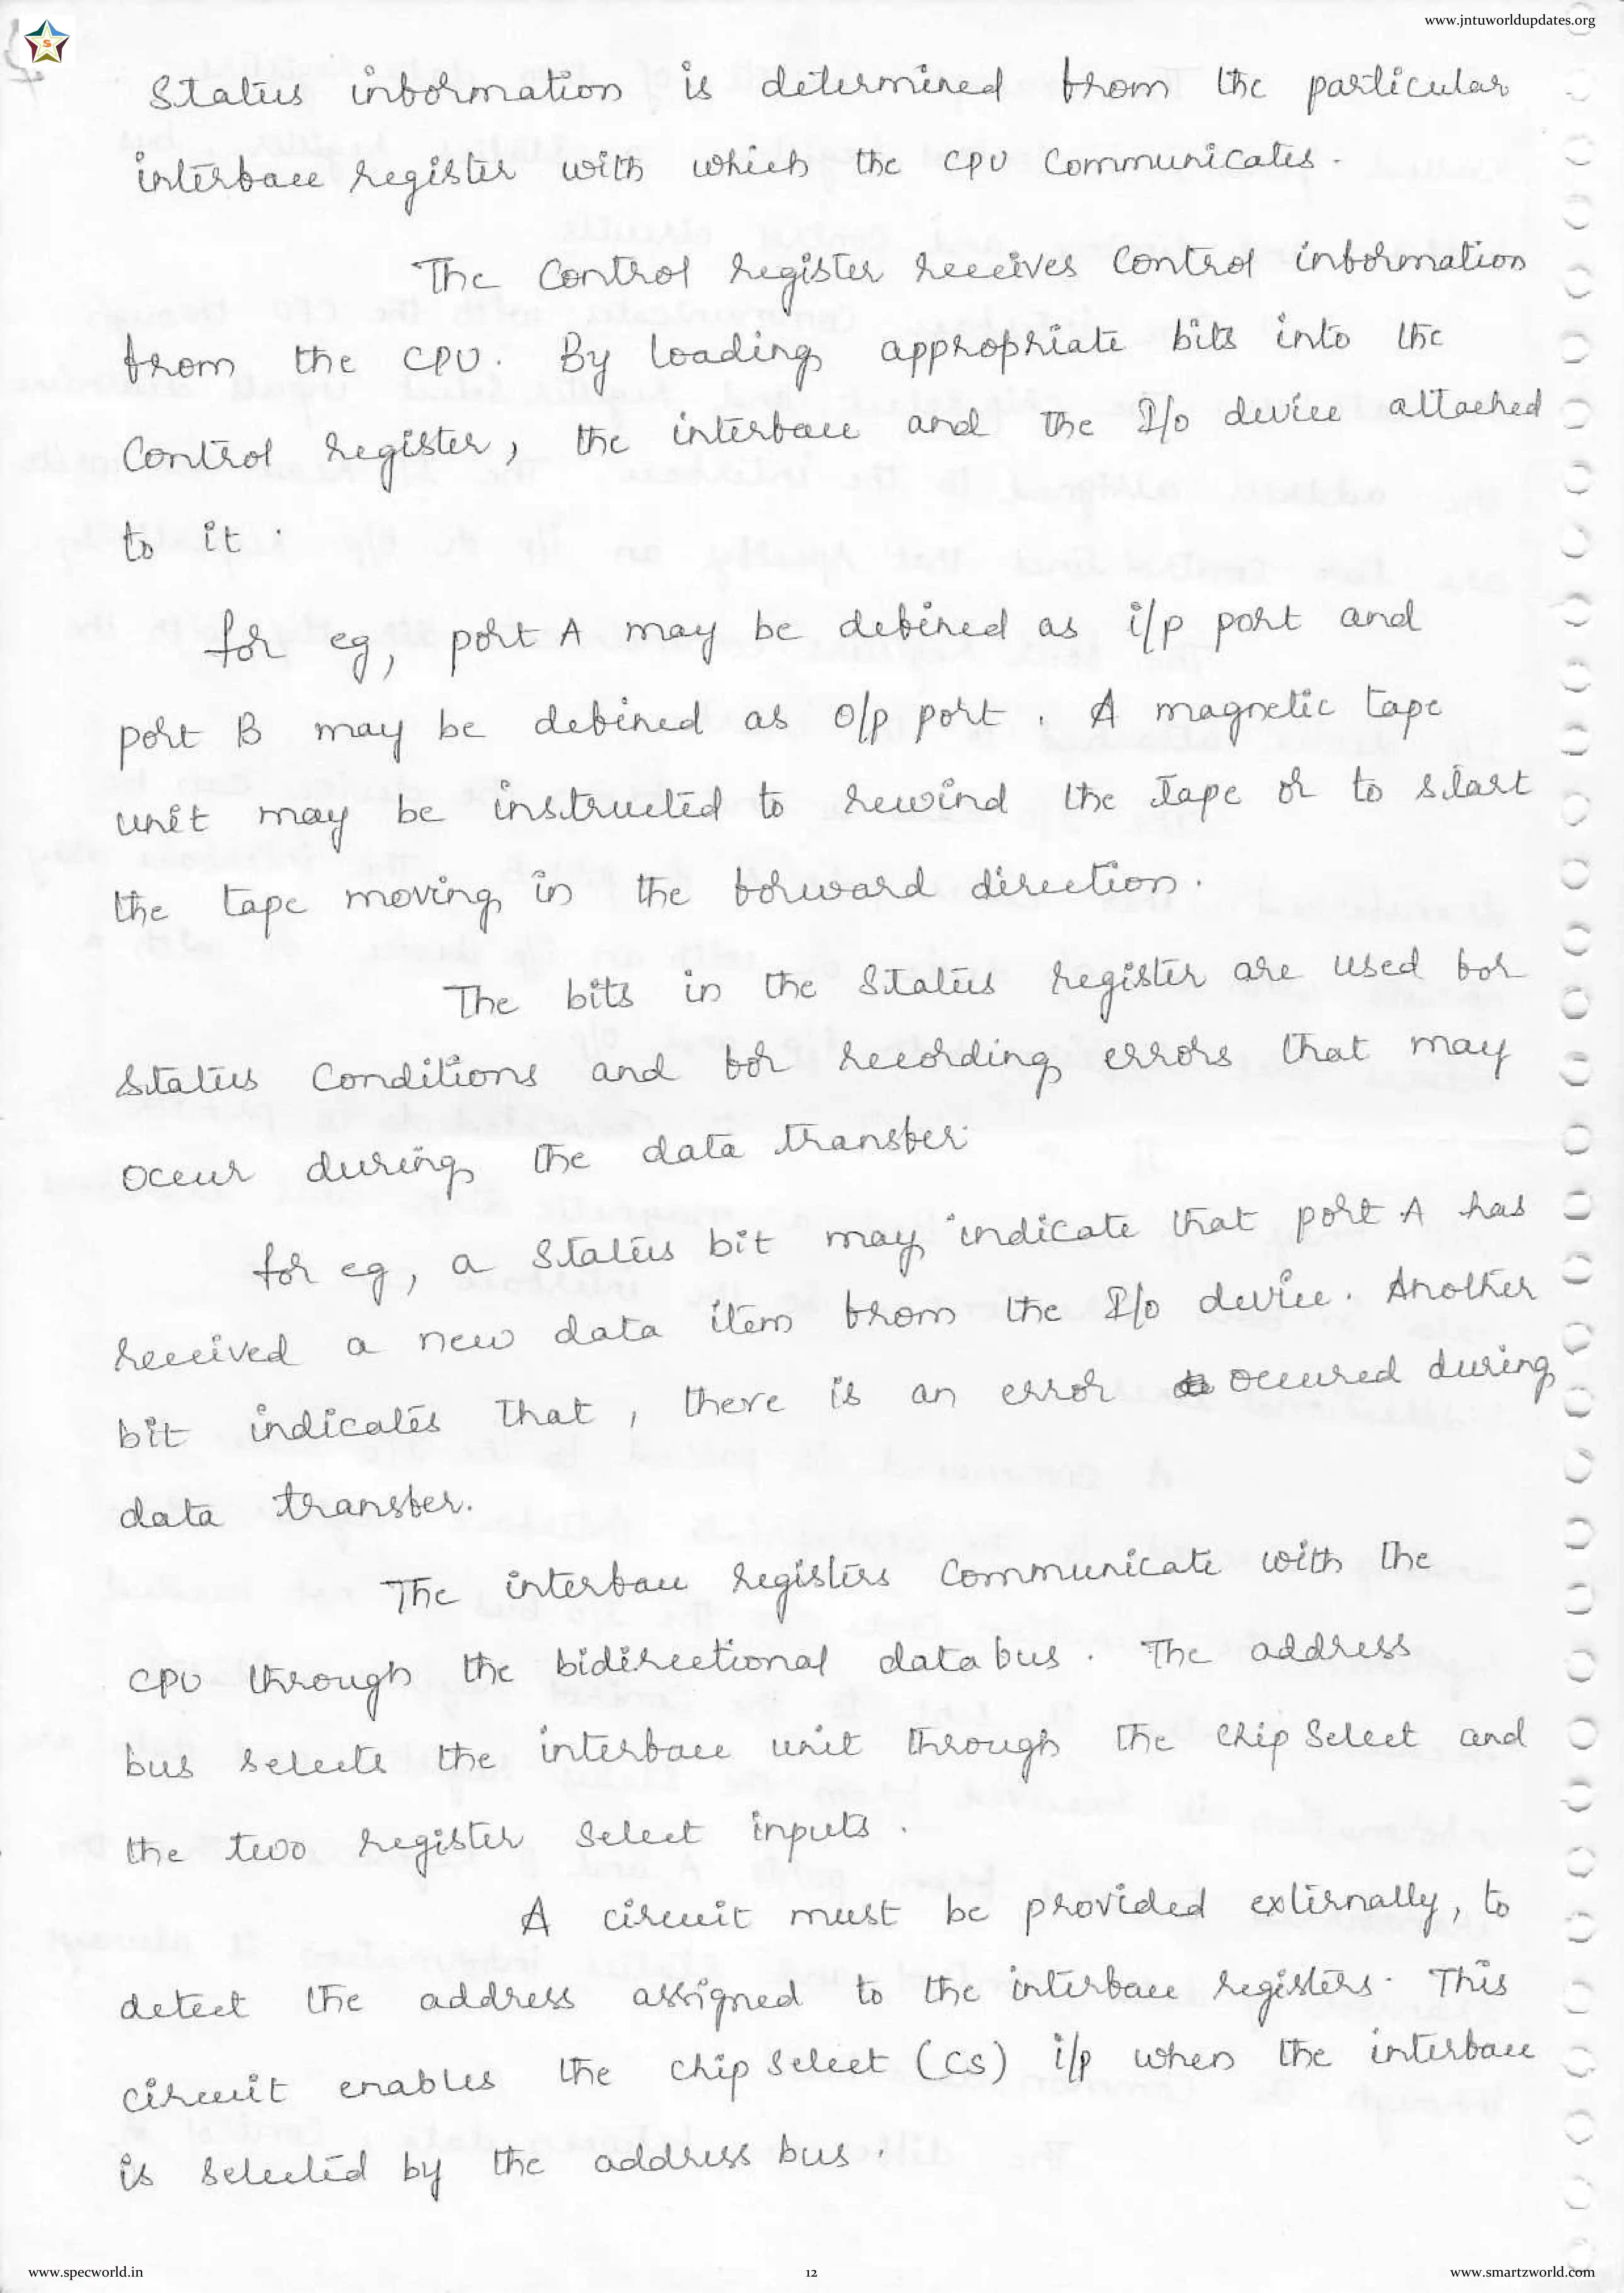 www.jntuworldupdates.org
Status information is determined from the particular
interface register with which the CPU Communicates.
The Control register receives Control information
from the CPU. By loading appropriate bits into the
Control register, the interface and the I/o device attached
to it.
for eg, port A may be defined as i/p port and
port B may be defined as o/p port. A magnetic tape
unit may be instructed to rewind the tape or to start
the tape moving in the forward direction.
The bits in the Status register are used for
Status Conditions and for recording errors that may
occur during the data transfer.
for eg, a Status bit may indicate that port A has
received a new data item from the I/o device. Another
bit indicates that, there is an error occured during
data transfer.
The interface registers Communicate with the
CPU through the bidirectional data bus. The address
bus selects the interface unit through the chip Select and
the two register Select inputs.
A circuit must be provided externally, to
detect the address assigned to the interface registers. This
circuit enables the chip Select (CS) i/p when the interface
is selected by the address bus.
www.specworld.in
12
www.smartzworld.com